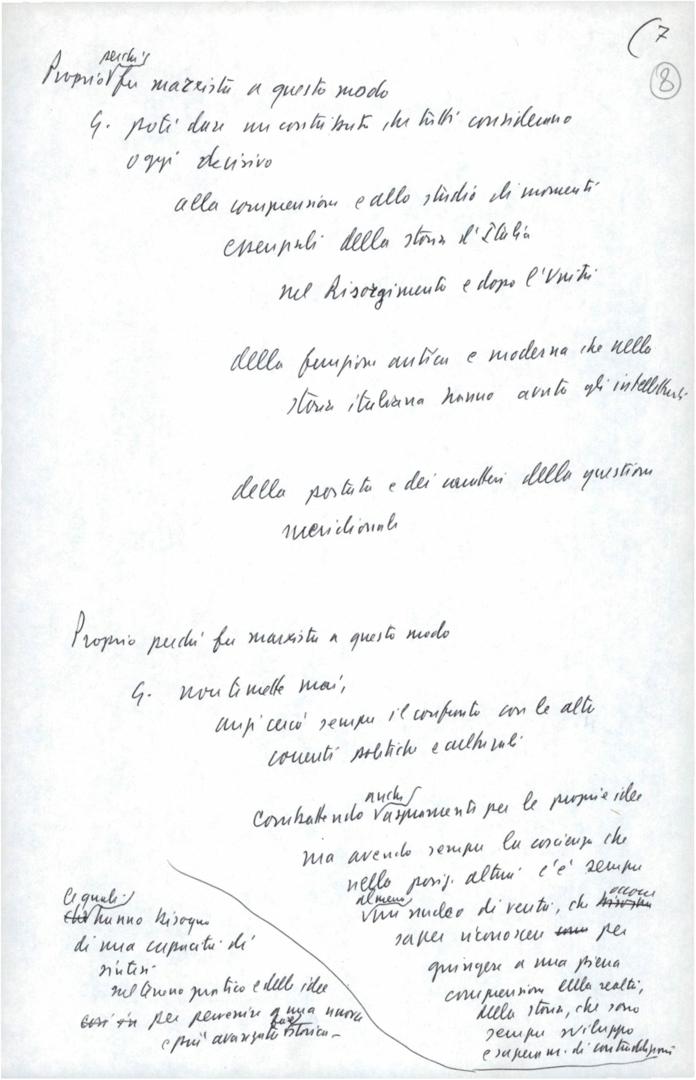 (7
8
perché
Proprio fu marxista a questo modo
G. poté dare un contributo che tutti considerano
oggi decisivo
alla comprensione e allo studio di momenti
essenziali della storia d'Italia
nel Risorgimento e dopo l'Unità
della funzione antica e moderna che nella
storia italiana hanno avuto gli intellettuali
della portata e dei caratteri della questione
meridionale
Proprio perché fu marxista a questo modo
G. non temette mai,
anzi cercò sempre il confronto con le altre
correnti politiche e culturali
anche
combattendo aspramente per le proprie idee
ma avendo sempre la coscienza che
nella posiz. altrui c'è sempre
almeno occorre
un nucleo di verità, che bisogna
saper riconoscere per
giungere a una piena
comprensione della realtà,
della storia, che sono
sempre sviluppo
e superam. di contraddizioni
le quali
che hanno bisogno
di una capacità di
sintesi
nel terreno pratico e delle idee
così in per pervenire a una nuova
fase
e più avanzata storica -